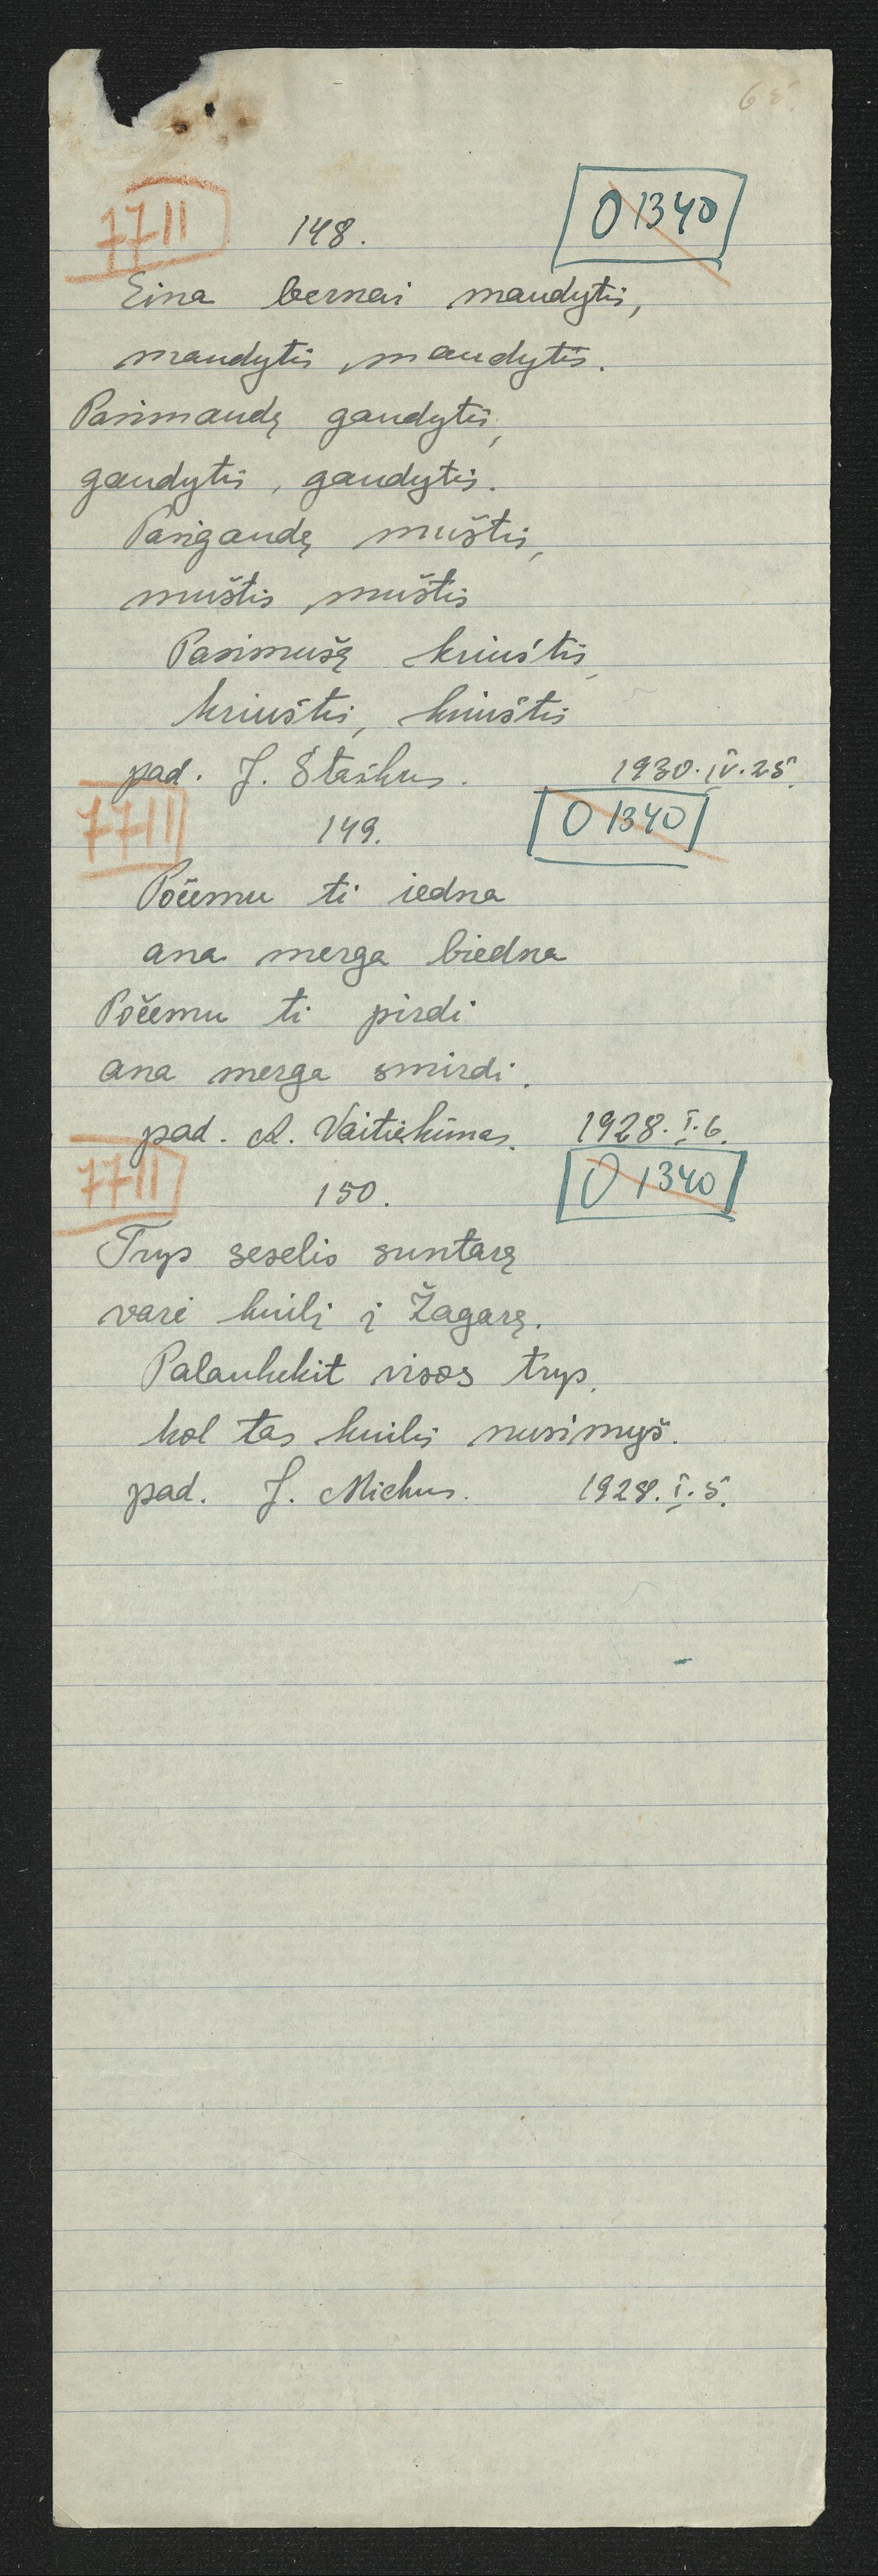 65.
7711 148. O 1340
Eina bernai maudytis,
maudytis, maudytis.
Pasimaudę gaudytis,
gaudytis, gaudytis.
Pasigaudę muštis,
muštis, muštis
Pasimušę kriuštis,
kriuštis, kriuštis
pad. J. Staškus. 1930.IV.25.
7711 149. O 1340
Počemu ti iedna
ana merga biedna
Počemu ti pirdi
ana merga smirdi.
pad. A. Vaitiekūnas. 1928.I.6.
7711 150. O 1340
Trys seselis suntarę
varė kuilį į Žagarę.
Palaukekit visos trys,
kol tas kuilis nusimyš.
pad. J. Mickus. 1928.I.5.